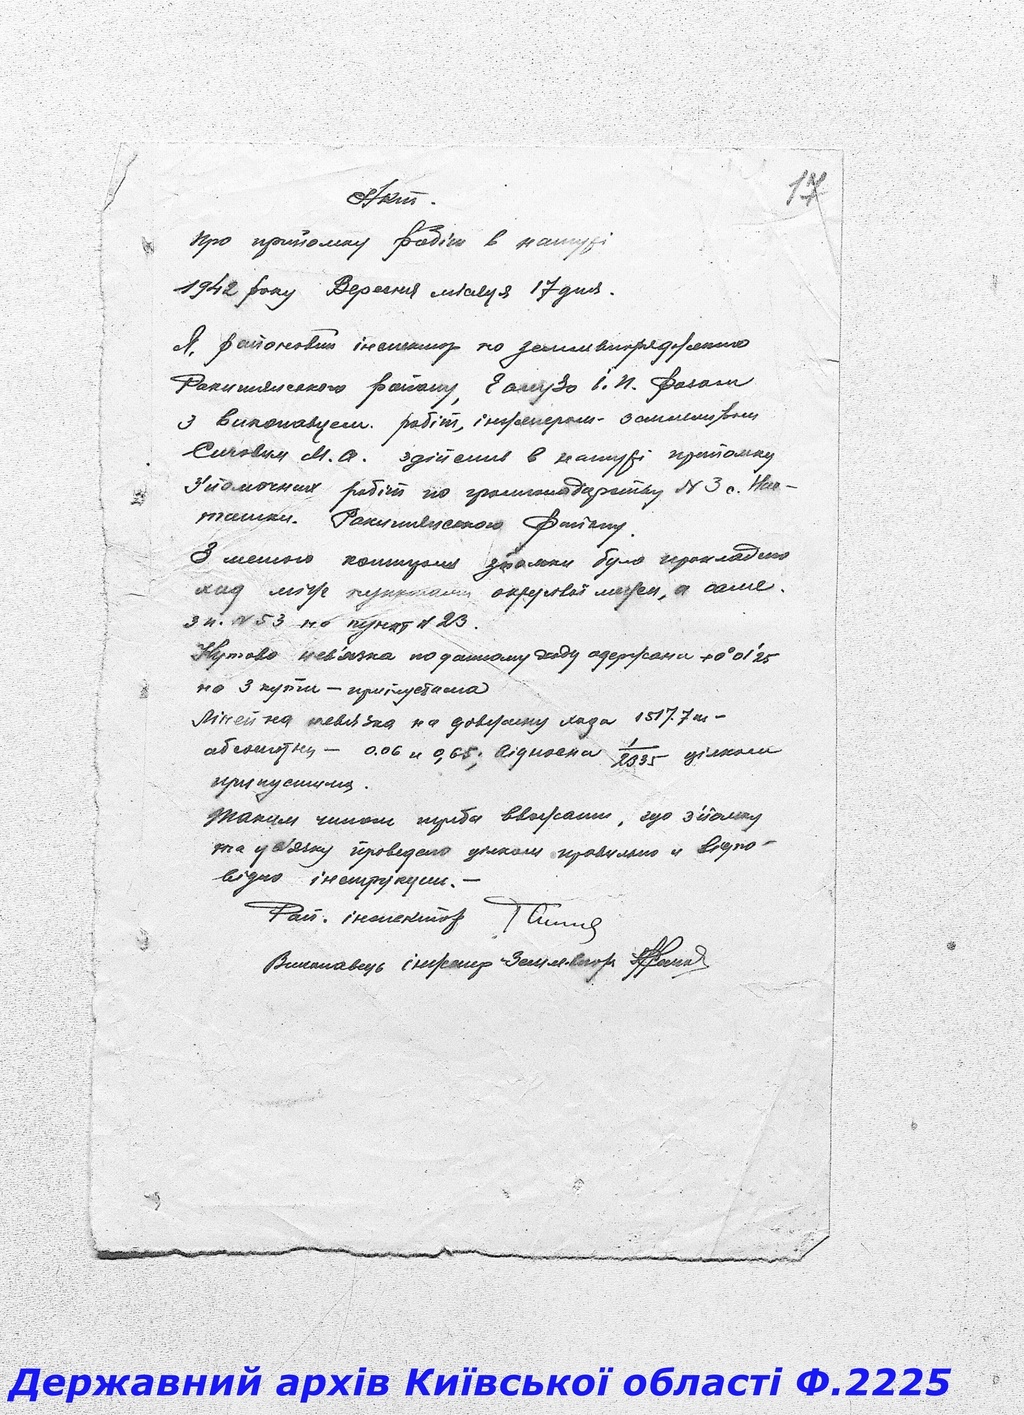 17
Акт.
Про прийомку робіт в натурі
1942 року Вересня місяця 17 дня.
Я, районовий інспектор по землевпорядженню
Рокитнянського району, І. П. разом
з виконавцем робіт, інженером-землеміром
М. А. здійснив в натурі прийомку
з'йомочних робіт по громгоспдарству N 3 с. Нас-
ташки. Рокитнянського району.
З метою контроля зйомки було прокладено
ход між пунктами окружової межи, а саме.
з п. N 53 на пункт N 23.
Кутова невязка по данному ходу одержана +0°01'25
на 3 кути – припустима
Лінейна невязка на довжину хода 1517.7 m –
абсолютна – 0.06 и 0,65; відносна 1/2335 цілком
припустима.
Таким чином треба вважати, що з'йомку
та ув'язку проведено цілком правильно и відпо-
відно інструкции. –
Рай. інспектор
Виконавець інженер-Землевпор
Державний архів Київської області Ф.2225